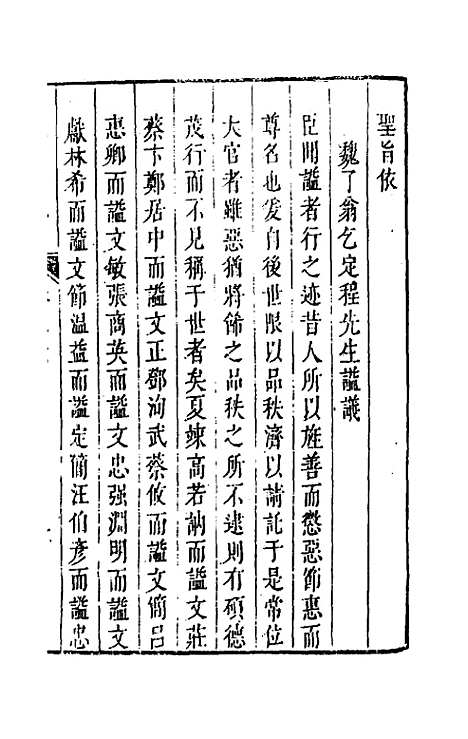 聖旨依
魏了翁乞定程先生謚議
臣聞謚者行之迹昔人所以旌善而懲惡節惠而
尊名也爰自後世限以品秩濟以請託于是常位
大官者雖惡猶將飾之品秩之所不逮則有碩德
茂行而不見稱于世者矣夏竦高若訥而謚文莊
蔡卞鄭居中而謚文正鄧洵武蔡攸而謚文簡呂
惠卿而謚文敏張商英而謚文忠强淵明而謚文
獻林希而謚文節温益而謚定簡汪伯彥而謚忠